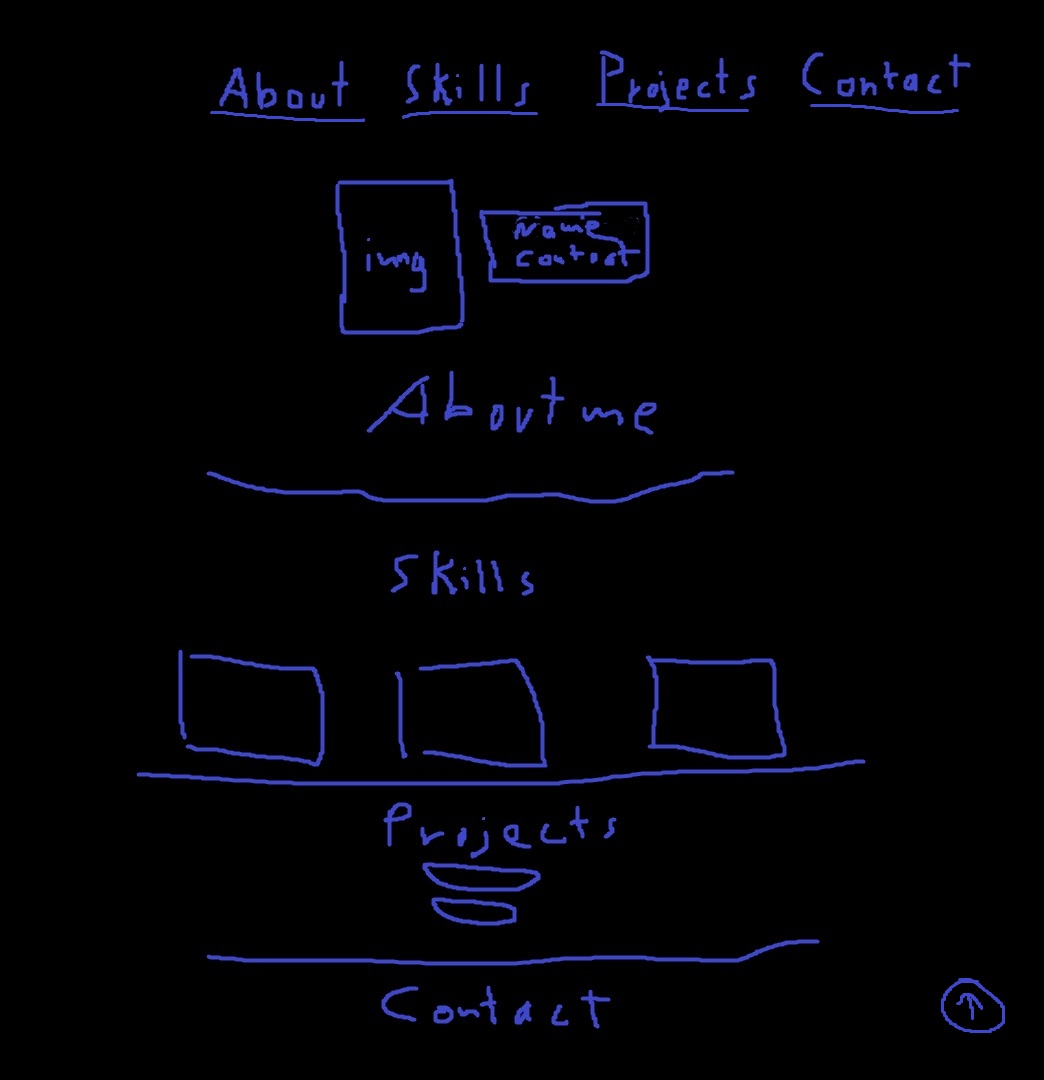 About Skills Projects Contact
img
Name
Contact
About me
Skills
Projects
Contact